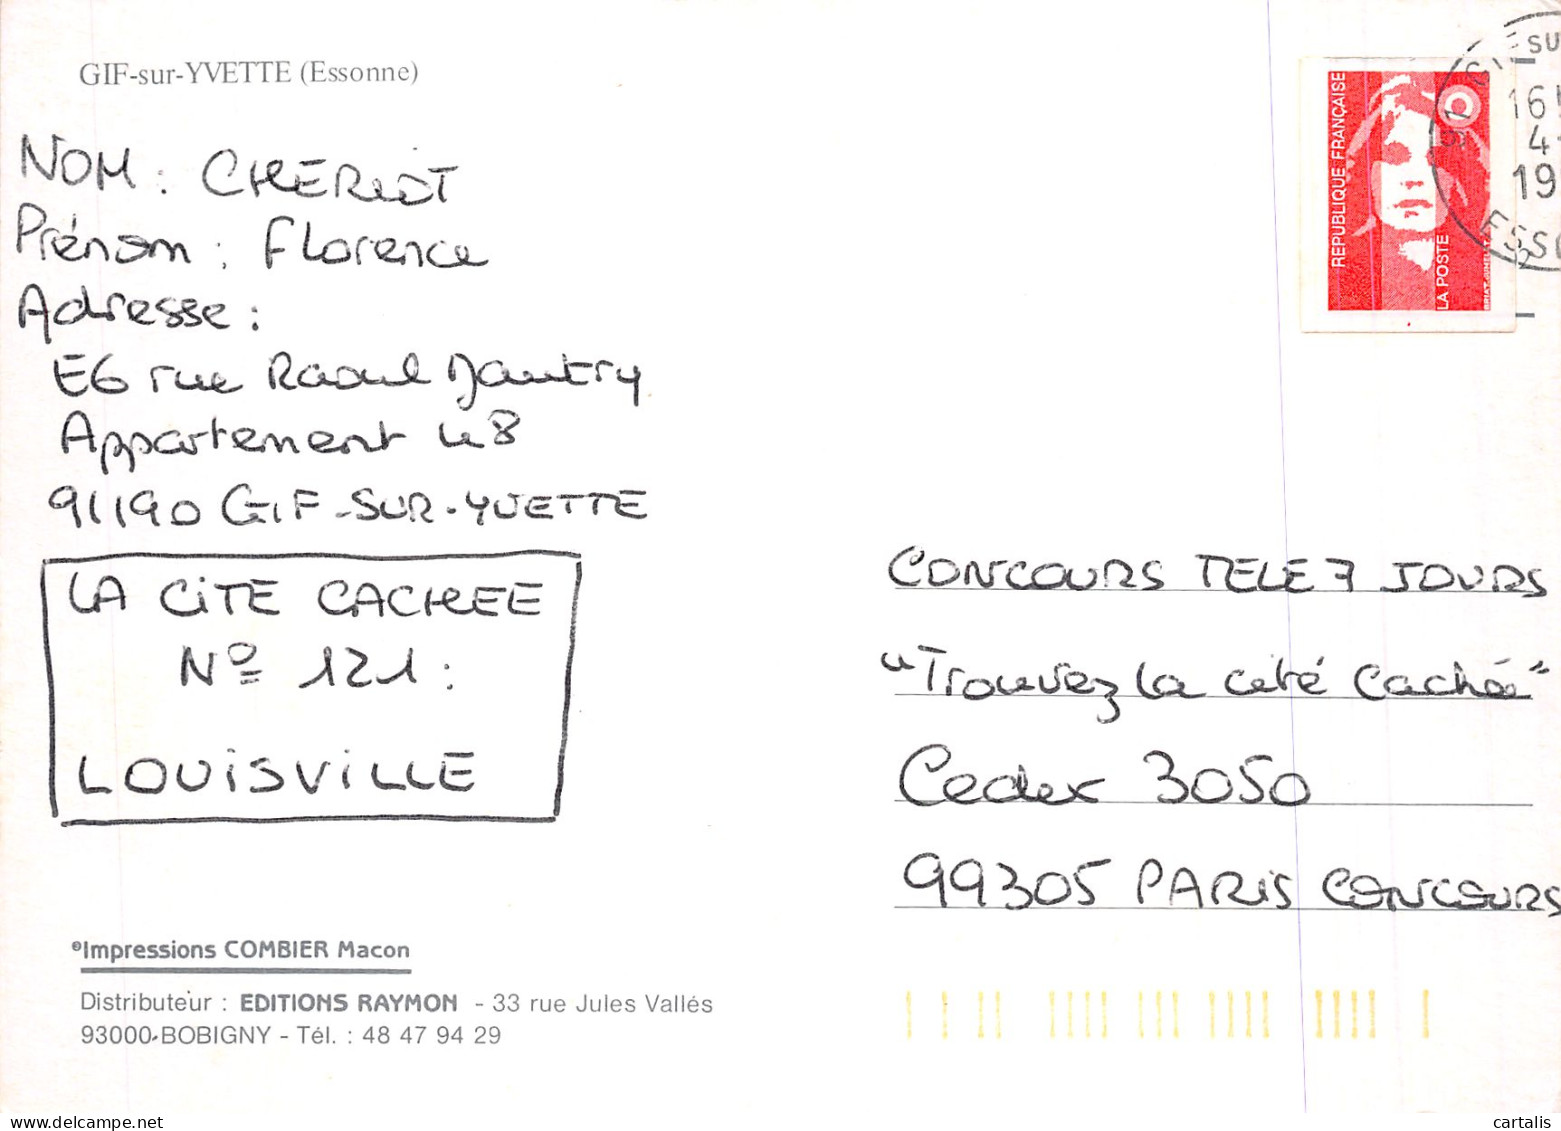 GIF-sur-YVETTE (Essonne)
NOM : CHERIOT
Prénom : Florence
Adresse :
E6 rue Raoul Dautry
Appartement 48
91190 GIF-SUR-YVETTE
LA CiTE CACHEE
Nº 121 :
LOUiSViLLE
Impressions COMBIER Macon
Distributeur : EDITIONS RAYMON - 33 rue Jules Vallés
93000-BOBIGNY - Tél. : 48 47 94 29
REPUBLIQUE FRANÇAISE
LA POSTE
SU
16
4
19
ESSO
CONCOURS TELE 7 JOURS
"Trouvez la cité cachée"
Cedex 3050
99305 PARiS CONCOURS
cartalis